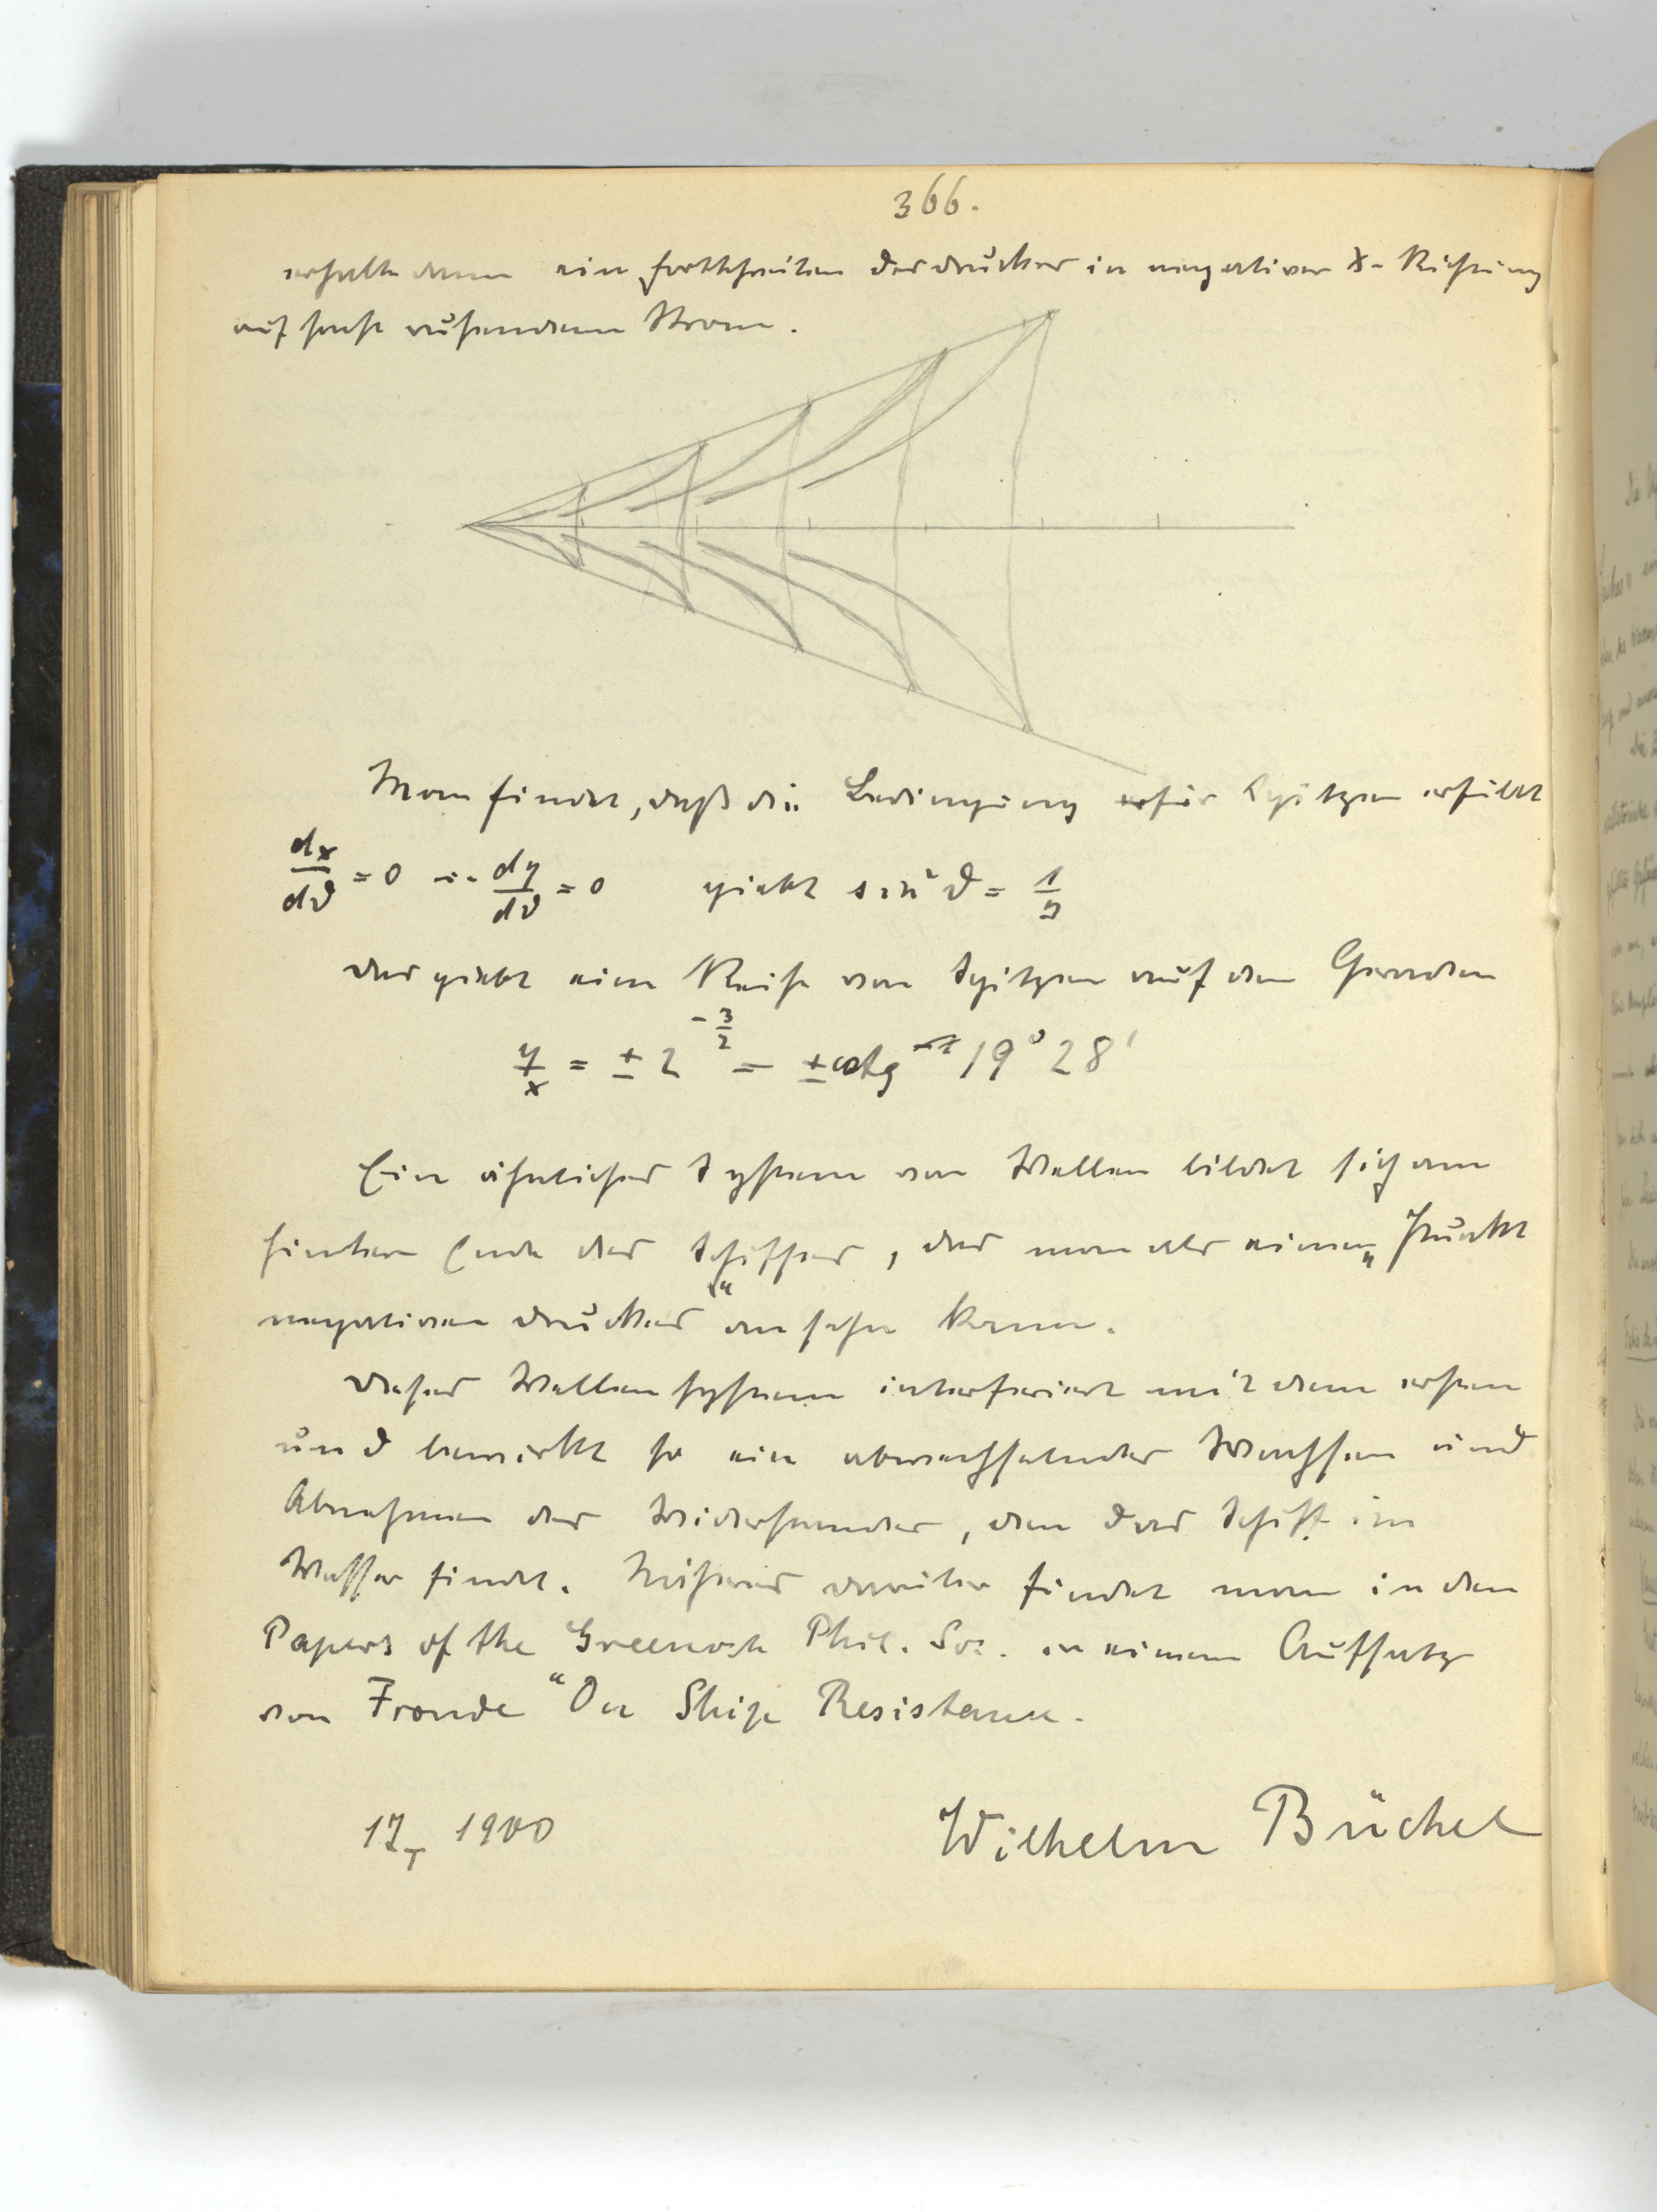 366.
erhalte dann ein Fortschreiten des Druckes in negativer x-Richtung
auf sonst ruhendem Strom.
Man findet, daß die Bedingung für Spitzen erfüllt
dx/dϑ = 0 dy/dϑ = 0 giebt sin²ϑ = 1/3
das giebt eine Reihe von Spitzen auf den Geraden
y/x = ± 2^(-3/2) = ± cotg 19° 28'
Ein ähnliches System von Wellen bildet sich am
hinteren Ende des Schiffes, das man als einen „Punkt
negativen Druckes“ ansehn kann.
Dieses Wellensystem interferiert mit dem ersten
und bewirkt so ein abwechselndes Wachsen und
Abnehmen des Widerstandes, den das Schiff im
Wasser findet. Näheres darüber findet man in den
Papers of the Greenock Phil. Soc. in einem Aufsatz
von Froude "On Ship Resistance.
17/I 1900 Wilhelm Büchel